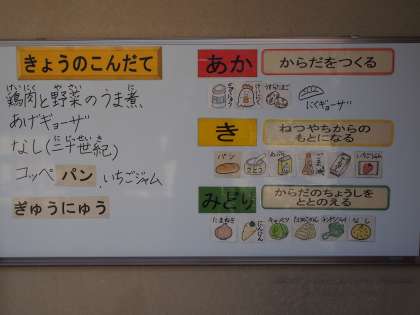 きょうのこんだて
鶏肉と野菜のうま煮
けいにく やさい に
あげギョーザ
なし(二十世紀)
にじっせいき
コッペパン、いちごジャム
ぎゅうにゅう
あか からだをつくる
ぎゅうにゅう とりにく
にくギョーザ
き ねつやちからの
もとになる
パン さとう あぶら いちごジャム
みどり からだのちょうしを
ととのえる
たまねぎ にんじん キャベツ なし